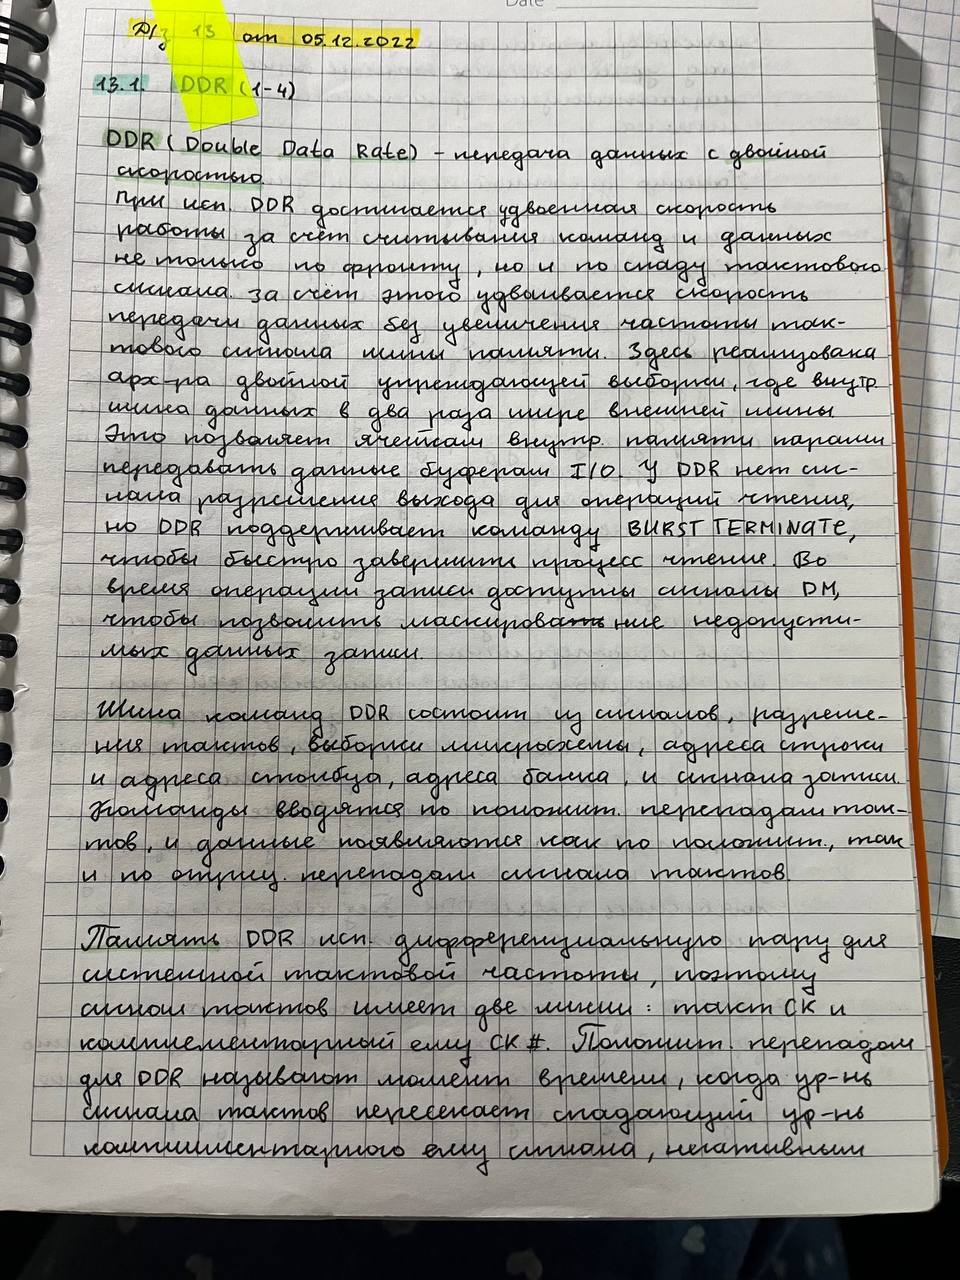 Date
Д/з 13 от 05.12.2022
13.1. DDR (1-4)
DDR (Double Data Rate) - передача данных с двойной
скоростью.
При исп. DDR достигается удвоенная скорость
работы за счёт считывания команд и данных
не только по фронту, но и по спаду тактового
сигнала. За счёт этого удваивается скорость
передачи данных без увеличения частоты так-
тового сигнала шины памяти. Здесь реализована
арх-ра двойной упреждающей выборки, где внутр.
шина данных в два раза шире внешней шины
Это позволяет ячейкам внутр. памяти парами
передавать данные буферам I/O. У DDR нет сиг-
нала разрешения выхода для операций чтения,
но DDR поддерживает команду BURST TERMINATE,
чтобы быстро завершить процесс чтения. Во
время операции записи доступны сигналы DM,
чтобы позволить маскирование недопусти-
мых данных записи.
Шина команд DDR состоит из сигналов, разреше-
ния тактов, выборки микросхемы, адреса строки
и адреса столбца, адреса банка, и сигнала записи.
Команды вводятся по положит. перепадам так-
тов, и данные появляются как по положит., так
и по отриц. перепадам сигнала тактов.
Память DDR исп. дифференциальную пару для
системной тактовой частоты, поэтому
сигнал тактов имеет две линии: такт CK и
комплементарный ему CK #. Положит. перепадом
для DDR называют момент времени, когда ур-нь
сигнала тактов пересекает спадающий ур-нь
комплиментарного ему сигнала, негативным